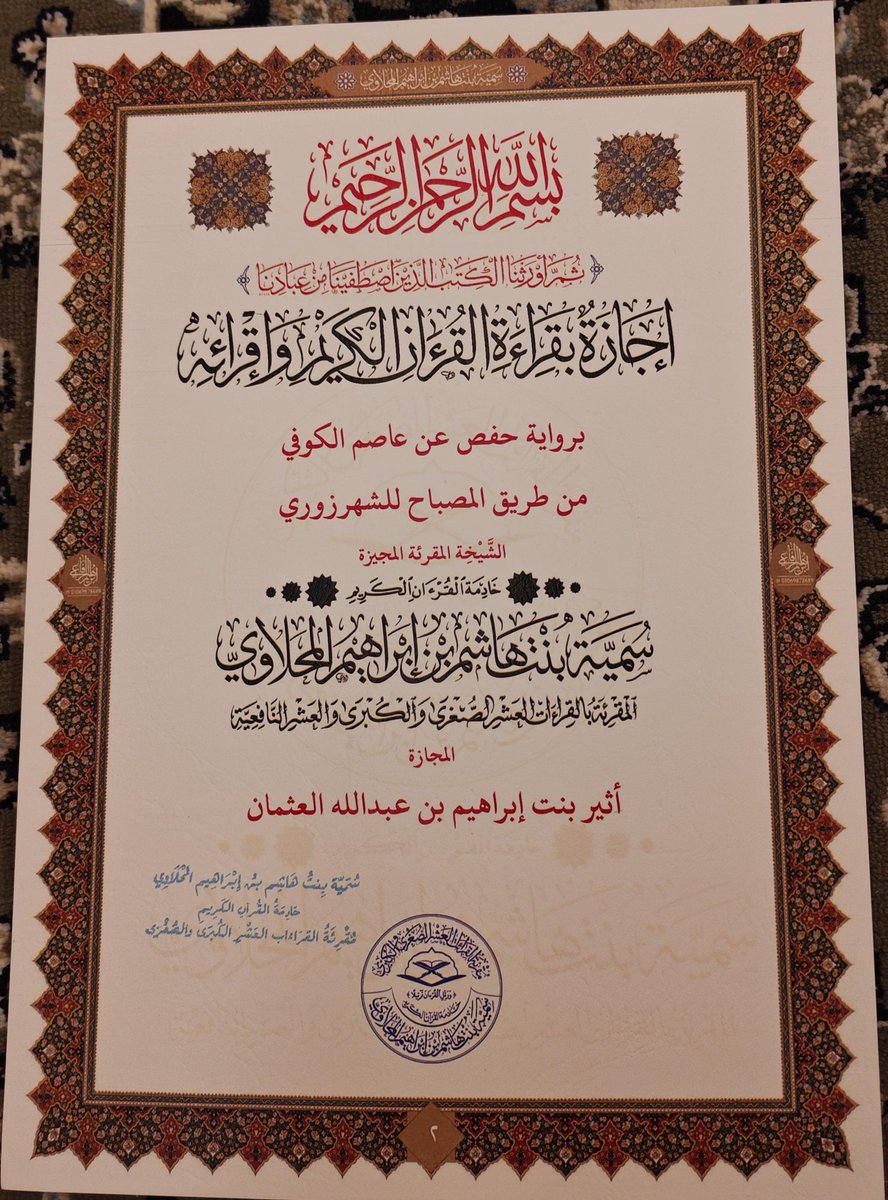 سمية بنت هاشم بن إبراهيم المحلاوي
بسم الله الرحمن الرحيم
﴿ ثُمَّ أَوْرَثْنَا الْكِتَٰبَ الَّذِينَ اصْطَفَيْنَا مِنْ عِبَادِنَا ﴾
إِجَازَةٌ بِقِرَاءَةِ القُرْءَانِ الكَرِيْمِ وَإِقْرَائِهِ
برواية حفص عن عاصم الكوفي
من طريق المصباح للشهرزوري
الشَّيْخِة المقرئة المجيزة
خَادِمَة الْقُرْءَانِ الْكَرِيمِ
سُمَيَّة بِنْت هَاشِم بْن إِبْرَاهِيْم المَحَلَاوِي
المُقْرِئَة بِالقِرَاءَات العَشْرِ الصُّغْرَى وَالكُبْرَى وَالعَشْرِ النَّافِعِيَّة
المجازة
أثير بنت إبراهيم بن عبدالله العثمان
سُمَيَّة بِنْتُ هَاشِم بْن إِبْرَاهِيم المَحْلَاوِي
خَادِمَةُ القُرآنِ الكَرِيمِ
مُقْرِئَةُ القِرَاءَاتِ العَشْرِ الكُبْرَى والصُّغْرَى
مقرئة القراءات العشر الصغرى والكبرى
﴿ ورتل القرءان ترتيلا ﴾
خادمة القرآن الكريم
سمية بنت هاشم بن إبراهيم المحلاوي
٢